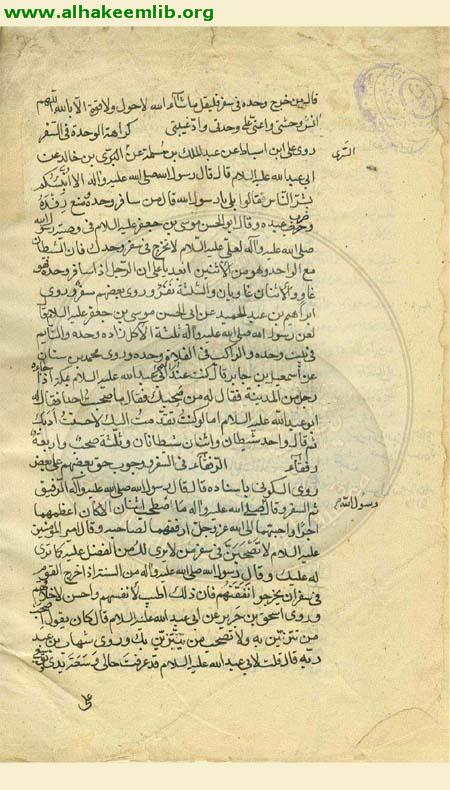 www.alhakeemlib.org
قال من خرج وحده فى سفر فليقل ما شاء الله لا حول ولا قوة الا بالله اللهم
انس وحشتى واعنى على وحدتى واد غيبتى كراهة الوحدة فى السفر
روى على ابن اسباط عن عبد الملك بن مسلمة عن البرى بن خالد عن
السرى
ابى عبد الله عليه السلام قال قال رسول الله صلى الله عليه وآله الا انبئكم
بشر الناس فقالوا بلى يا رسول الله قال من سافر وحده ومنع رفده
وضرب عبده وقال ابو الحسن موسى بن جعفر عليه السلام فى وصية رسول الله
صلى الله عليه وآله لعلى عليه السلام لا تخرج فى سفر وحدك فان الشيطان
مع الواحد وهو من الاثنين ابعد يا على ان الرجل اذا سافر وحده فهو
غاو والاثنان غاويان والثلثة نفر وروى بعضهم سفر وروى
ابراهيم بن عبد الحميد عن ابى الحسن موسى بن جعفر عليه السلام قال
لعن رسول الله صلى الله عليه وآله ثلثة الاكل زاده وحده والنائم
فى بيت وحده والراكب فى الفلاة وحده وروى محمد بن سنان
عن اسمعيل بن جابر قال كنت عند ابى عبد الله عليه السلام بمكة اذ جاءه
رجل من المدينة فقال له من صحبك فقال ما صحبت احدا فقال له
ابو عبد الله عليه السلام اما لو كنت تقدمت اليك لاحسنت ادبك
ثم قال واحد شيطان واثنان شيطانان وثلثة صحب واربعة
رفقاء الرفقاء فى السفر ووجوب حق بعضهم على بعض
روى السكونى باسناده قال قال رسول الله صلى الله عليه وآله الرفيق
ثم السفر وقال صلى الله عليه وآله ما اصطحب اثنان الا كان اعظمهما
ورسول الله
اجرا واحبهما الى الله عز وجل ارفقهما لصاحبه وقال امير المؤمنين
عليه السلام لا تصحبن فى سفر من لا يرى لك من الفضل عليه كما ترى
له عليك وقال رسول الله صلى الله عليه وآله من السنة اذا خرج القوم
فى سفر ان يخرجوا نفقتهم فان ذلك اطيب لانفسهم واحسن لاخلاقهم
وروى اسحق بن جرير عن ابى عبد الله عليه السلام قال كان يقول اصحب
من تتزين به ولا تصحب من يتزين بك وروى شهاب بن عبد
ربه قال قلت لابى عبد الله عليه السلام قد عرفت حالى وسعة يدى